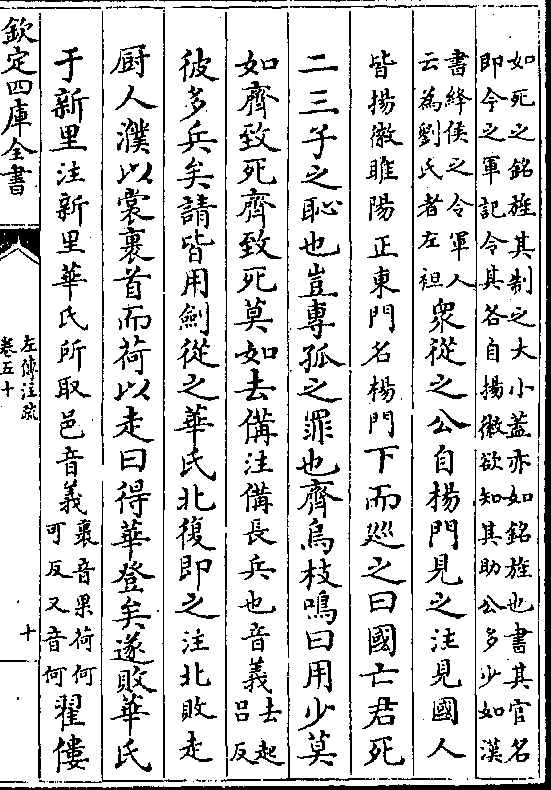 如死之銘旌其制之大小蓋亦如銘旌也書其官名
即今之軍記令其各自揚徽欲知其助公多少如漢
書絳侯之令軍人
云為劉氏者左袒
衆從之公自楊門見之注見國人
皆揚徽睢陽正東門名楊門下而廵之曰國亡君死
二三子之恥也豈專孤之罪也齊烏枝鳴曰用少莫
如齊致死齊致死莫如去備注備長兵也音義
去起
呂反
彼多兵矣請皆用劍從之華氏北復即之注北敗走
厨人濮以裳裹首而荷以走曰得華登矣遂敗華氏
于新里注新里華氏所取邑音義
裹音果荷何
可反又音何
翟僂
欽定四庫全書
左傳注疏
卷五十
十